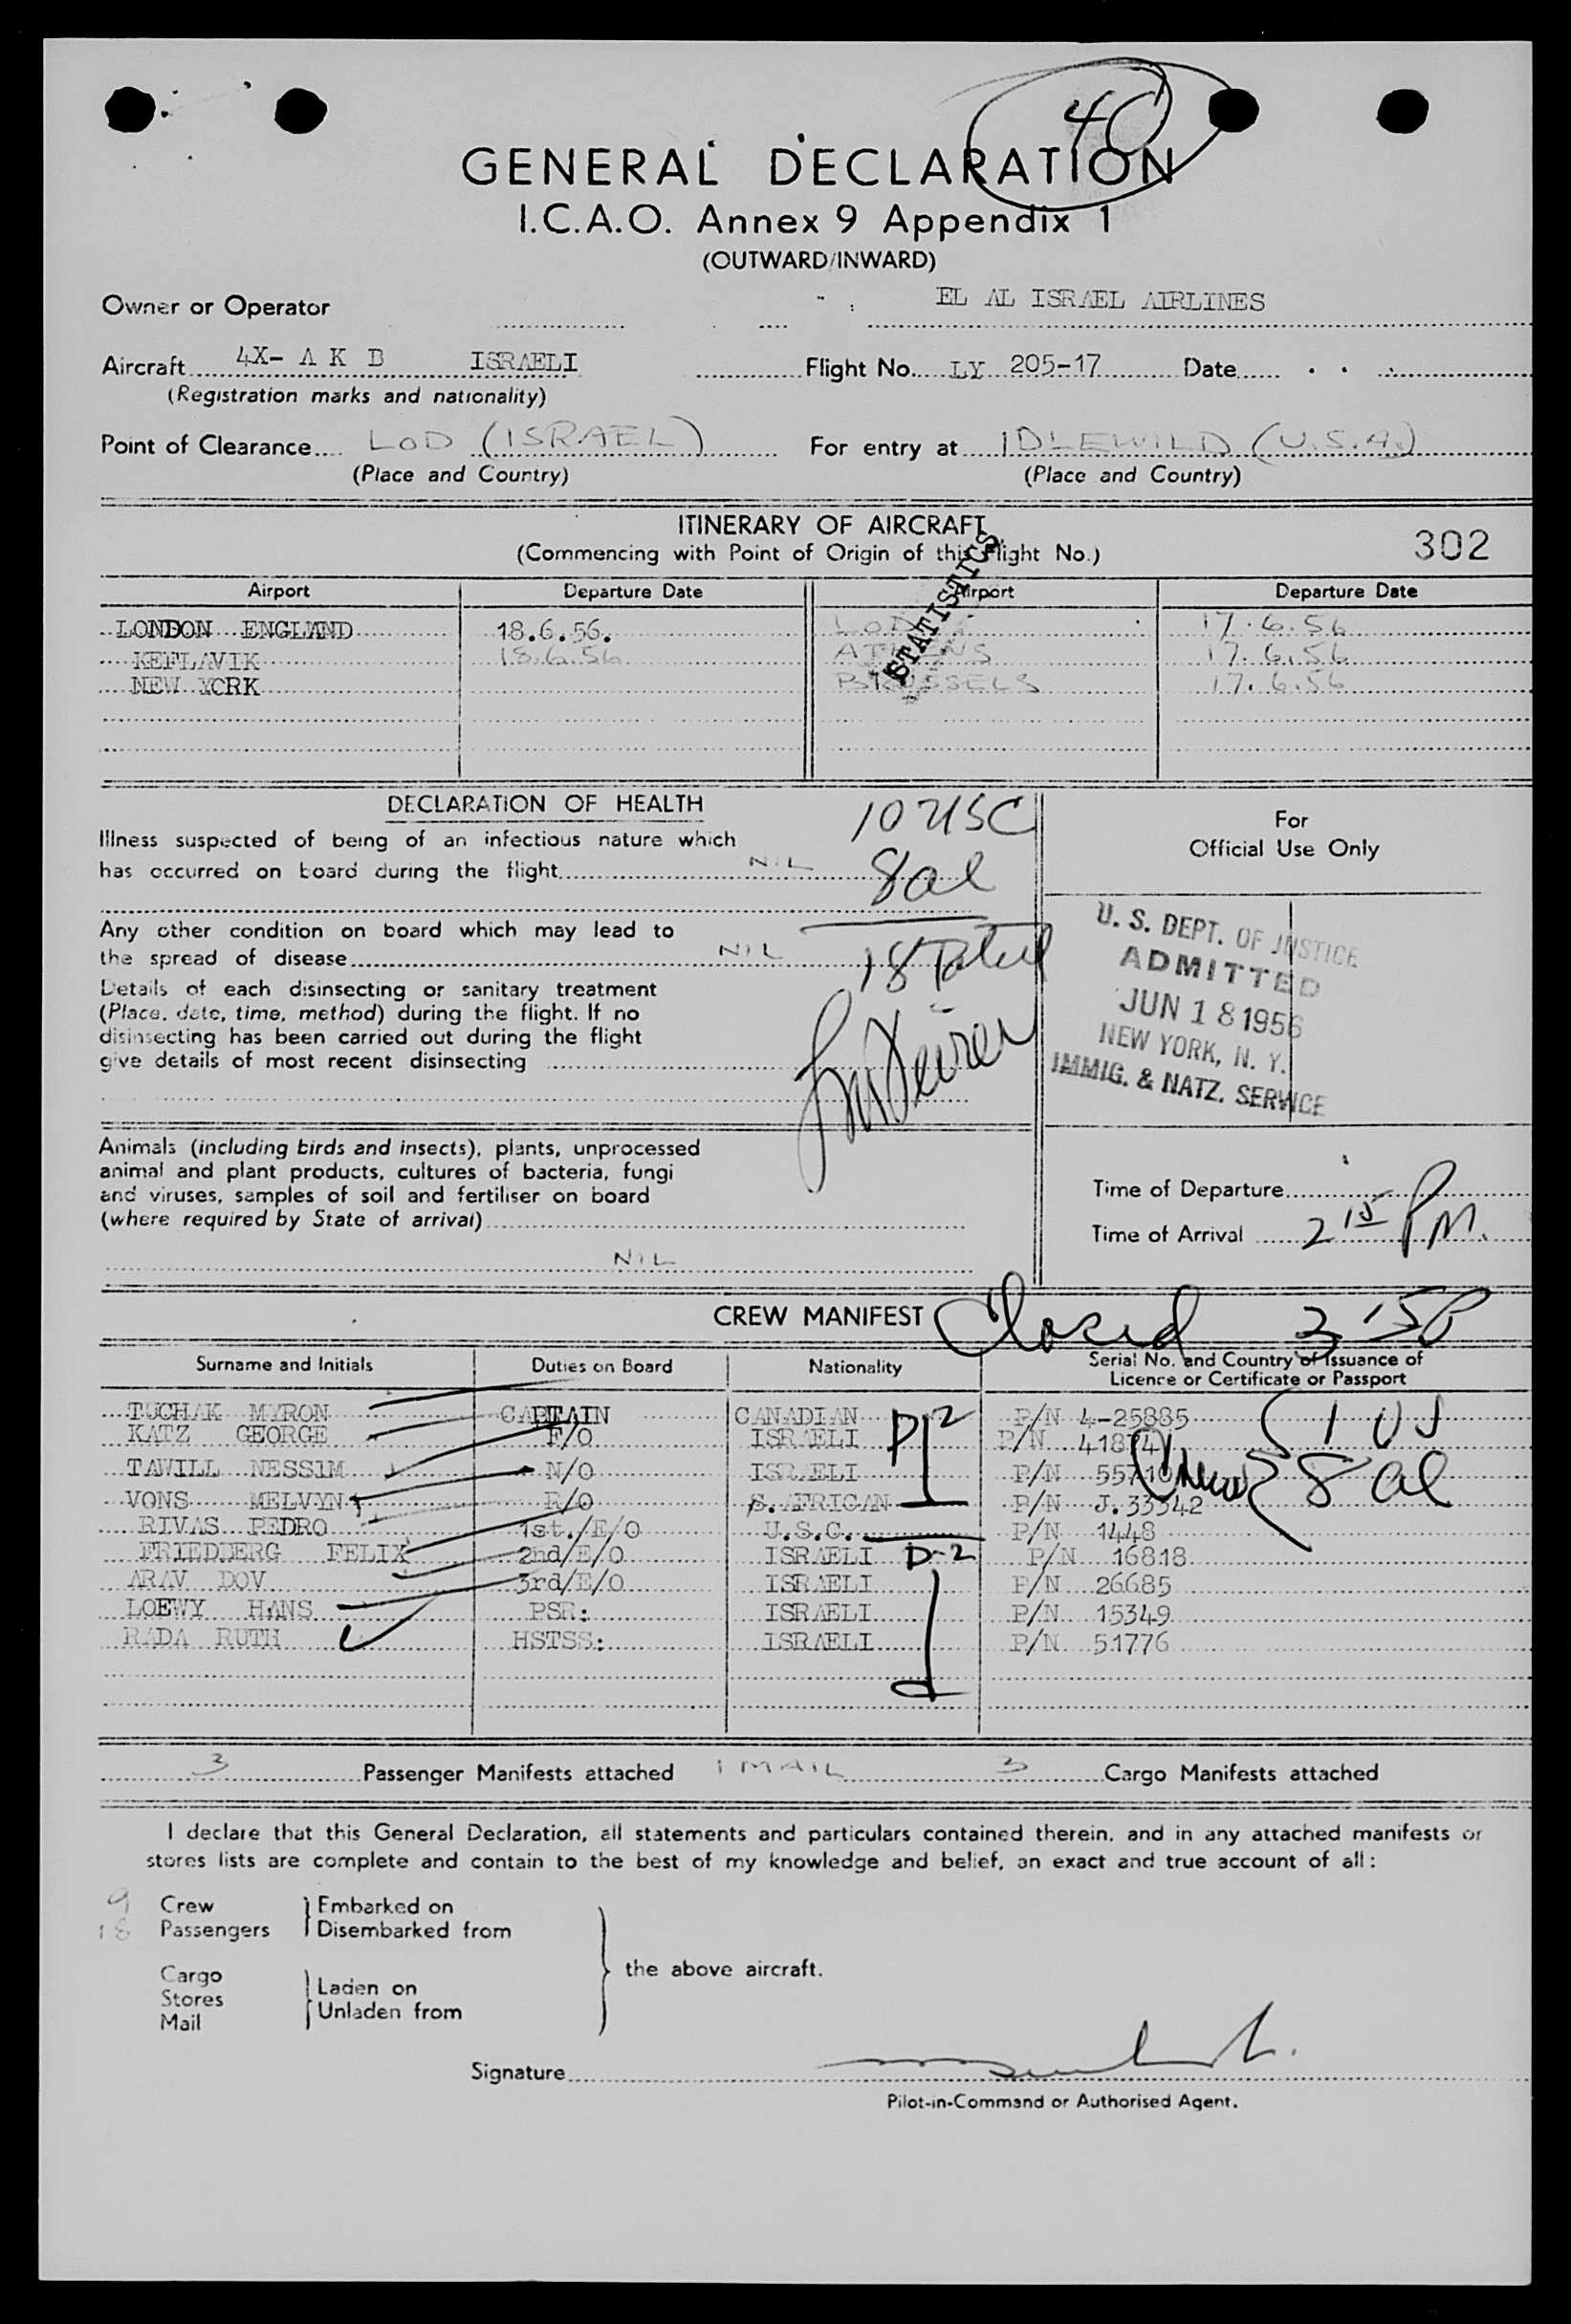 40
GENERAL DECLARATION
I.C.A.O. Annex 9 Appendix 1
(OUTWARD/INWARD)
Owner or Operator EL AL ISRAEL AIRLINES
Aircraft 4X- A K B ISRAELI Flight No. LY 205-17 Date
(Registration marks and nationality)
Point of Clearance LOD (ISRAEL) For entry at IDLEWILD (U.S.A.)
(Place and Country) (Place and Country)
ITINERARY OF AIRCRAFT
(Commencing with Point of Origin of this Flight No.) 302
STATISTICS
Airport Departure Date Airport Departure Date
LONDON ENGLAND 18.6.56. LOD 17.6.56
KEFLAVIK 18.6.56 ATHENS 17.6.56
NEW YORK BRUSSELS 17.6.56
DECLARATION OF HEALTH
10 USC
For
Official Use Only
Illness suspected of being of an infectious nature which
has occurred on board during the flight NIL
8 al
Any other condition on board which may lead to
the spread of disease NIL
18 Total
Details of each disinsecting or sanitary treatment
(Place, date, time, method) during the flight. If no
disinsecting has been carried out during the flight
give details of most recent disinsecting
U. S. DEPT. OF JUSTICE
ADMITTED
JUN 18 1956
NEW YORK, N. Y.
IMMIG. & NATZ. SERVICE
Animals (including birds and insects), plants, unprocessed
animal and plant products, cultures of bacteria, fungi
and viruses, samples of soil and fertiliser on board
(where required by State of arrival)
NIL
Time of Departure
Time of Arrival 2 15 PM.
CREW MANIFEST Closed 3 15 P
Surname and Initials Duties on Board Nationality Serial No. and Country of Issuance of
Licence or Certificate or Passport
TUCHAK MYRON CAPTAIN CANADIAN P/N 4-25885
KATZ GEORGE F/O ISRAELI P/N 41874
TAWILL NESSIM N/O ISRAELI P/N 55710
VONS MELVYN R/O S. AFRICAN P/N J.33342
RIVAS PEDRO 1st./E/O U.S.C. P/N 1448
FRIEDBERG FELIX 2nd/E/O ISRAELI P/N 16818
ARAV DOV 3rd/E/O ISRAELI P/N 26685
LOEWY HANS PSR: ISRAELI P/N 15349
RADA RUTH HSTSS: ISRAELI P/N 51776
D-2
D-2
Crew 1 US
8 al
3 Passenger Manifests attached 1 MAIL 3 Cargo Manifests attached
I declare that this General Declaration, all statements and particulars contained therein, and in any attached manifests or
stores lists are complete and contain to the best of my knowledge and belief, an exact and true account of all:
9 Crew Embarked on
18 Passengers Disembarked from
the above aircraft.
Cargo
Stores
Mail
Laden on
Unladen from
Signature
Pilot-in-Command or Authorised Agent.